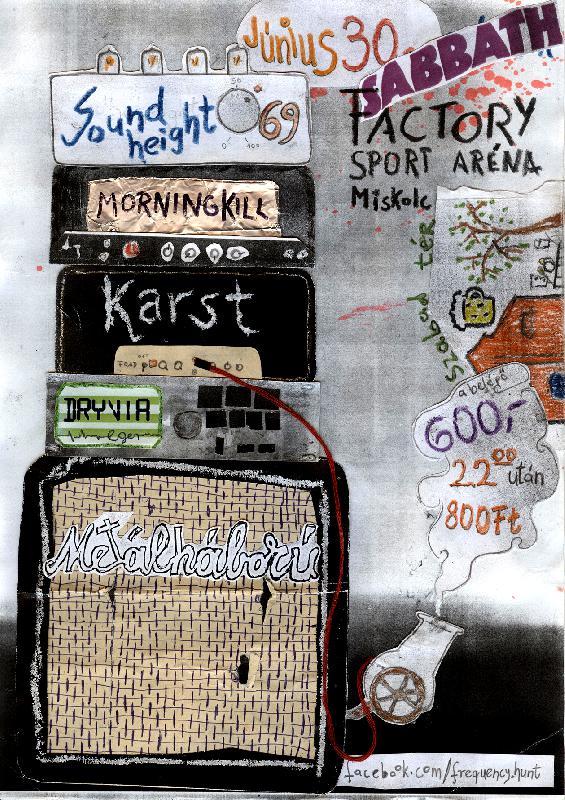 Június 30.
SABBATH
FACTORY
SPORT ARÉNA
Miskolc
Sound
height 69
MORNINGKILL
Karst
DRYVIA
Metálháború
Szabad tér
a belépő
600,-
22⁰⁰ után
800Ft
facebook.com/frequency.hunt